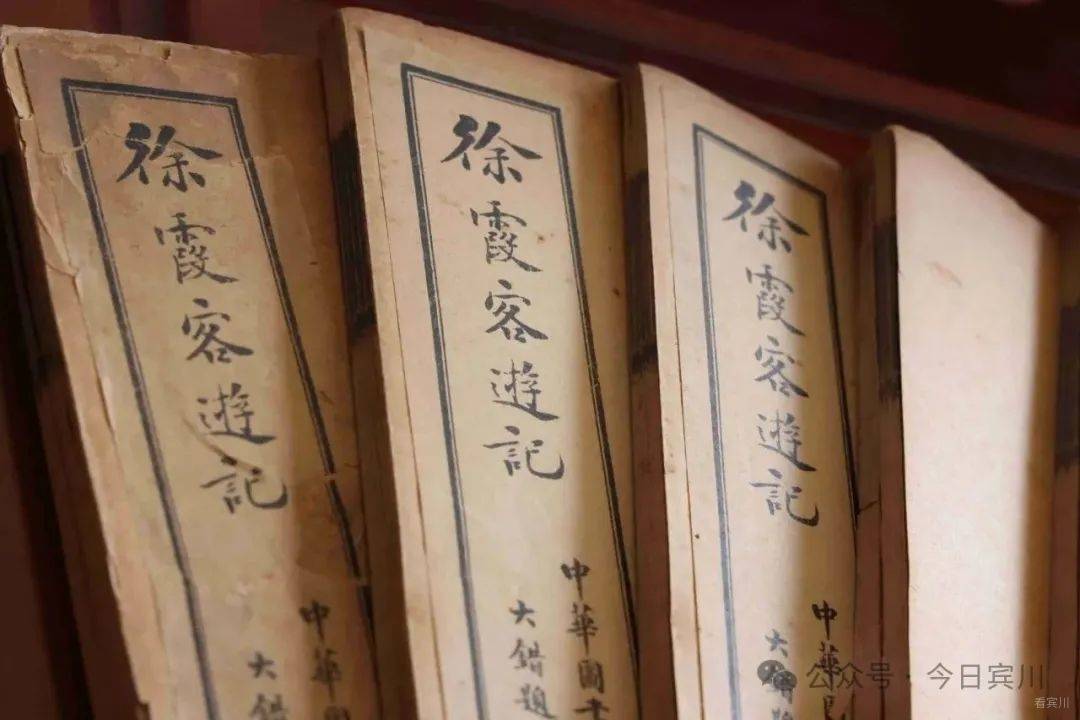 徐霞客遊記
中華
大錯
徐霞客遊記
中華
大錯題
徐霞客遊記
中華
大錯
公众号 · 今日宾川
看宾川